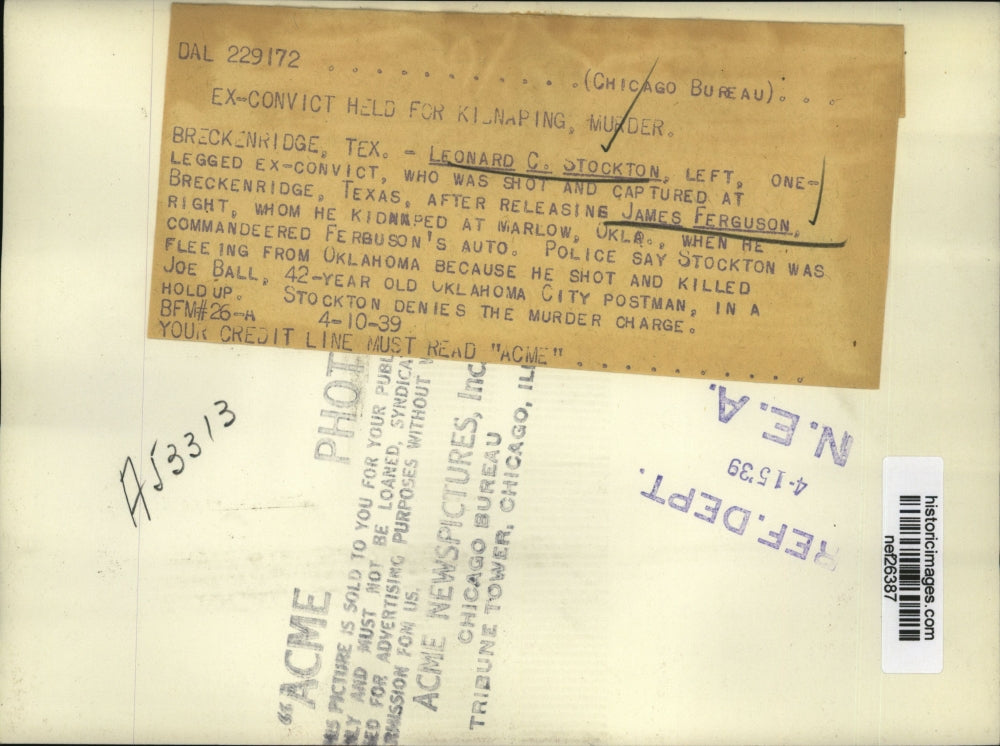 DAL 229172 . . . . . . . . . . . (CHICAGO BUREAU). . . .
EX-CONVICT HELD FOR KIDNAPING, MURDER.
BRECKENRIDGE, TEX. - LEONARD C. STOCKTON, LEFT, ONE-
LEGGED EX-CONVICT, WHO WAS SHOT AND CAPTURED AT
BRECKENRIDGE, TEXAS, AFTER RELEASING JAMES FERGUSON,
RIGHT, WHOM HE KIDNAPED AT MARLOW, OKLA., WHEN HE
COMMANDEERED FERBUSON'S AUTO. POLICE SAY STOCKTON WAS
FLEEING FROM OKLAHOMA BECAUSE HE SHOT AND KILLED
JOE BALL, 42-YEAR OLD OKLAHOMA CITY POSTMAN, IN A
HOLDUP. STOCKTON DENIES THE MURDER CHARGE.
BFM#26-A 4-10-39
YOUR CREDIT LINE MUST READ "ACME" . . . . . . . . .
AJ3313
PHOT
"ACME
PICTURE IS SOLD TO YOU FOR YOUR PUBL
AND MUST NOT BE LOANED, SYNDICA
FOR ADVERTISING PURPOSES WITHOUT
FOM US.
ACME NEWSPICTURES, Inc
CHICAGO BUREAU
TRIBUNE TOWER, CHICAGO, ILL
N.E.A.
4-15'39
REF. DEPT.
historicimages.com
nef26387